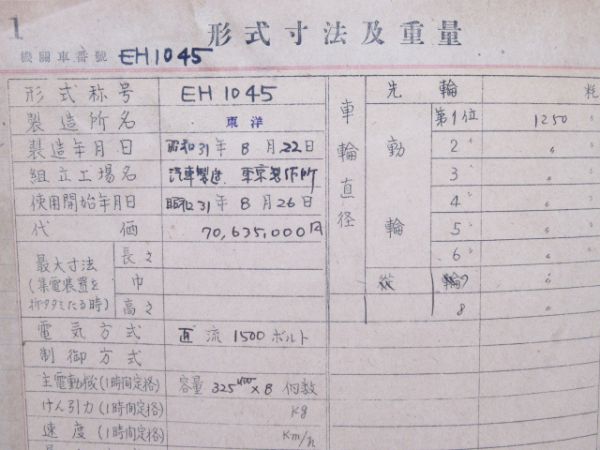 1
形式寸法及重量
機関車番号 EH1045
形式称号 EH1045
製造所名 東洋
製造年月日 昭和31年8月22日
組立工場名 汽車製造 東京製作所
使用開始年月日 昭和31年8月26日
代価 70,635,000円
最大寸法(集電装置を折タタミたる時) 長さ
巾
高さ
電気方式 直流1500ボルト
制御方式
主電動機(1時間定格) 容量325 ×8 個数
けん引力(1時間定格) kg
速度(1時間定格) km/h
車輪直径
先輪 粍
動輪 第1位 1250 〃
2〃 〃
3〃 〃
4〃 〃
5〃 〃
6〃 〃
従輪 7 〃
8 〃